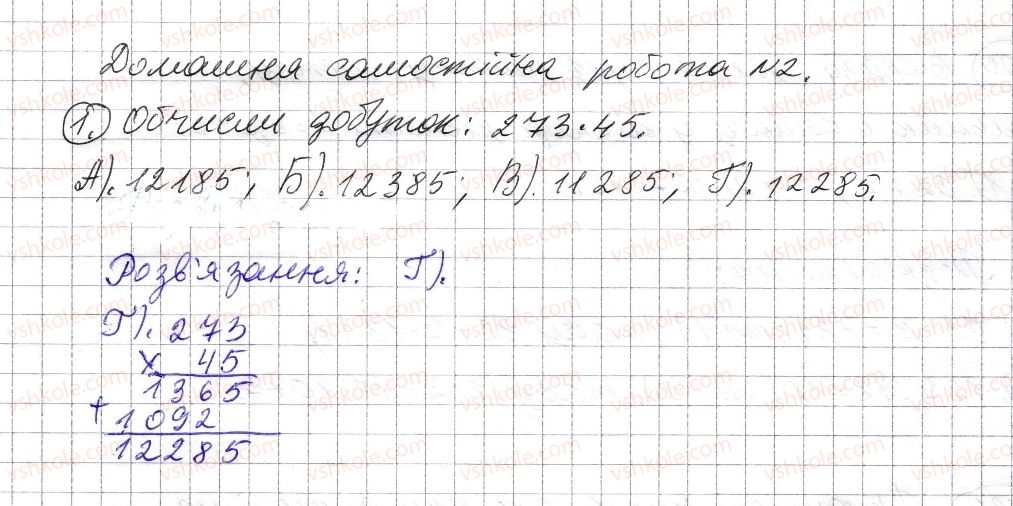 Домашня самостійна робота №2.
1. Обчисли добуток: 273·45.
А). 12185; Б). 12385; В). 11285; Г). 12285.
Розв'язання: Г).
Г). 273
x 45
1365
+ 1092
12285